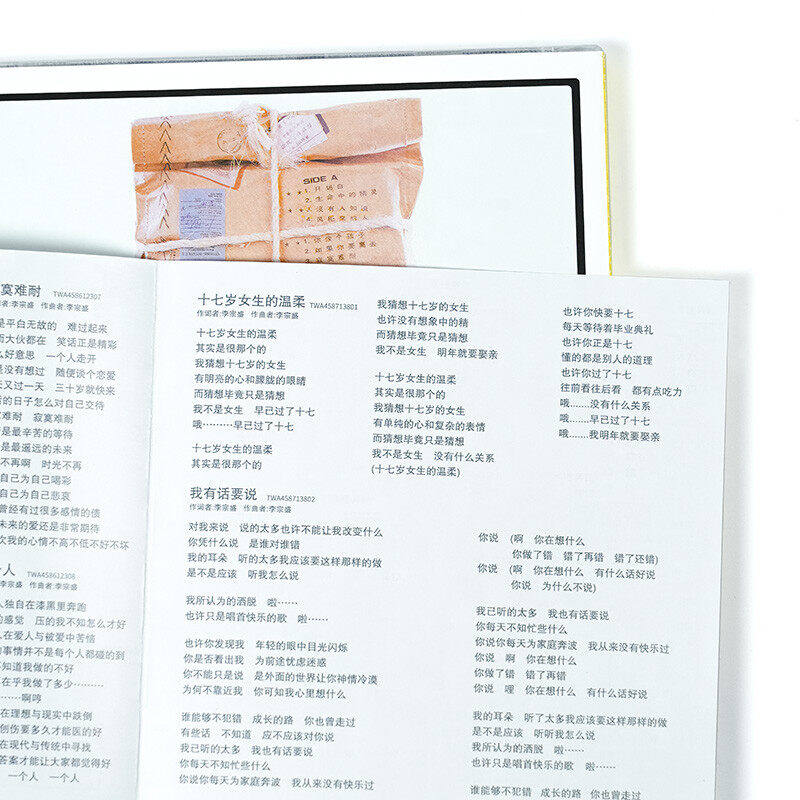 SIDE A
1. 只凭白
2. 生命中的精灵
3. 没有人知道
寞难耐 TWA458612307
作曲者:李宗盛
是平白无故的 难过起来
而大伙都在 笑话正是精彩
么好意思 一个人走开
是没有想过 随便谈个恋爱
天又过一天 三十岁就快来
的日子怎么对自己交待
寞难耐 寂寞难耐
是最辛苦的等待
是最遥远的未来
不再啊 时光不再
自己为自己喝彩
自己为自己悲哀
曾经有过很多感情的债
未来的爱还是非常期待
次我的心情不高不低不好不坏
个人 TWA458612308
作曲者:李宗盛
人独自在漆黑里奔跑
的感觉 压的我不知怎么才好
人在爱人与被爱中苦恼
的事情并不是每个人都碰的到
不知道我做的不好
在乎我做了多少………
……啊哼
在理想与现实中跌倒
创伤要多久才能医的好
在现代与传统中寻找
答案才能让大家都觉得好
一个人 一个人
十七岁女生的温柔 TWA458713801
作词者:李宗盛 作曲者:李宗盛
十七岁女生的温柔
其实是很那个的
我猜想十七岁的女生
有明亮的心和朦胧的眼睛
而猜想毕竟只是猜想
我不是女生 早已过了十七
哦………早已过了十七
十七岁女生的温柔
其实是很那个的
我猜想十七岁的女生
也许没有想象中的精
而猜想毕竟只是猜想
我不是女生 明年就要娶亲
十七岁女生的温柔
其实是很那个的
我猜想十七岁的女生
有单纯的心和复杂的表情
而猜想毕竟只是猜想
我不是女生 没有什么关系
(十七岁女生的温柔)
也许你快要十七
每天等待着毕业典礼
也许你正是十七
懂的都是别人的道理
也许你过了十七
往前看往后看 都有点吃力
哦.......没有什么关系
哦.......早已过了十七
哦.......我明年就要娶亲
我有话要说 TWA458713802
作词者:李宗盛 作曲者:李宗盛
对我来说 说的太多也许不能让我改变什么
你凭什么说 是谁对谁错
我的耳朵 听的太多我应该要这样那样的做
是不是应该 听我怎么说
我所认为的洒脱 啦……
也许只是唱首快乐的歌 啦……
也许你发现我 年轻的眼中目光闪烁
你是否看出我 为前途忧虑迷惑
你不能只是说 是外面的世界让你神情冷漠
为何不靠近我 你可知我心里想什么
谁能够不犯错 成长的路 你也曾走过
有些话 不知道 应不应该对你说
我已听的太多 我也有话要说
你每天不知忙些什么
你说你每天为家庭奔波 我从来没有快乐过
你说 (啊 你在想什么
你做了错 错了再错 错了还错)
你说 (啊 你在想什么 有什么话好说
你说 为什么不说)
我已听的太多 我也有话要说
你每天不知忙些什么
你说你每天为家庭奔波 我从来没有快乐过
你说 啊 你在想什么
你做了错 错了再错
你说 哩 你在想什么 有什么话好说
我的耳朵 听了太多我应该要这样那样的做
是不是应该 听听我怎么说
我所认为的洒脱 啦……
也许只是唱首快乐的歌 啦……
谁能够不犯错 成长的路 你也曾走过